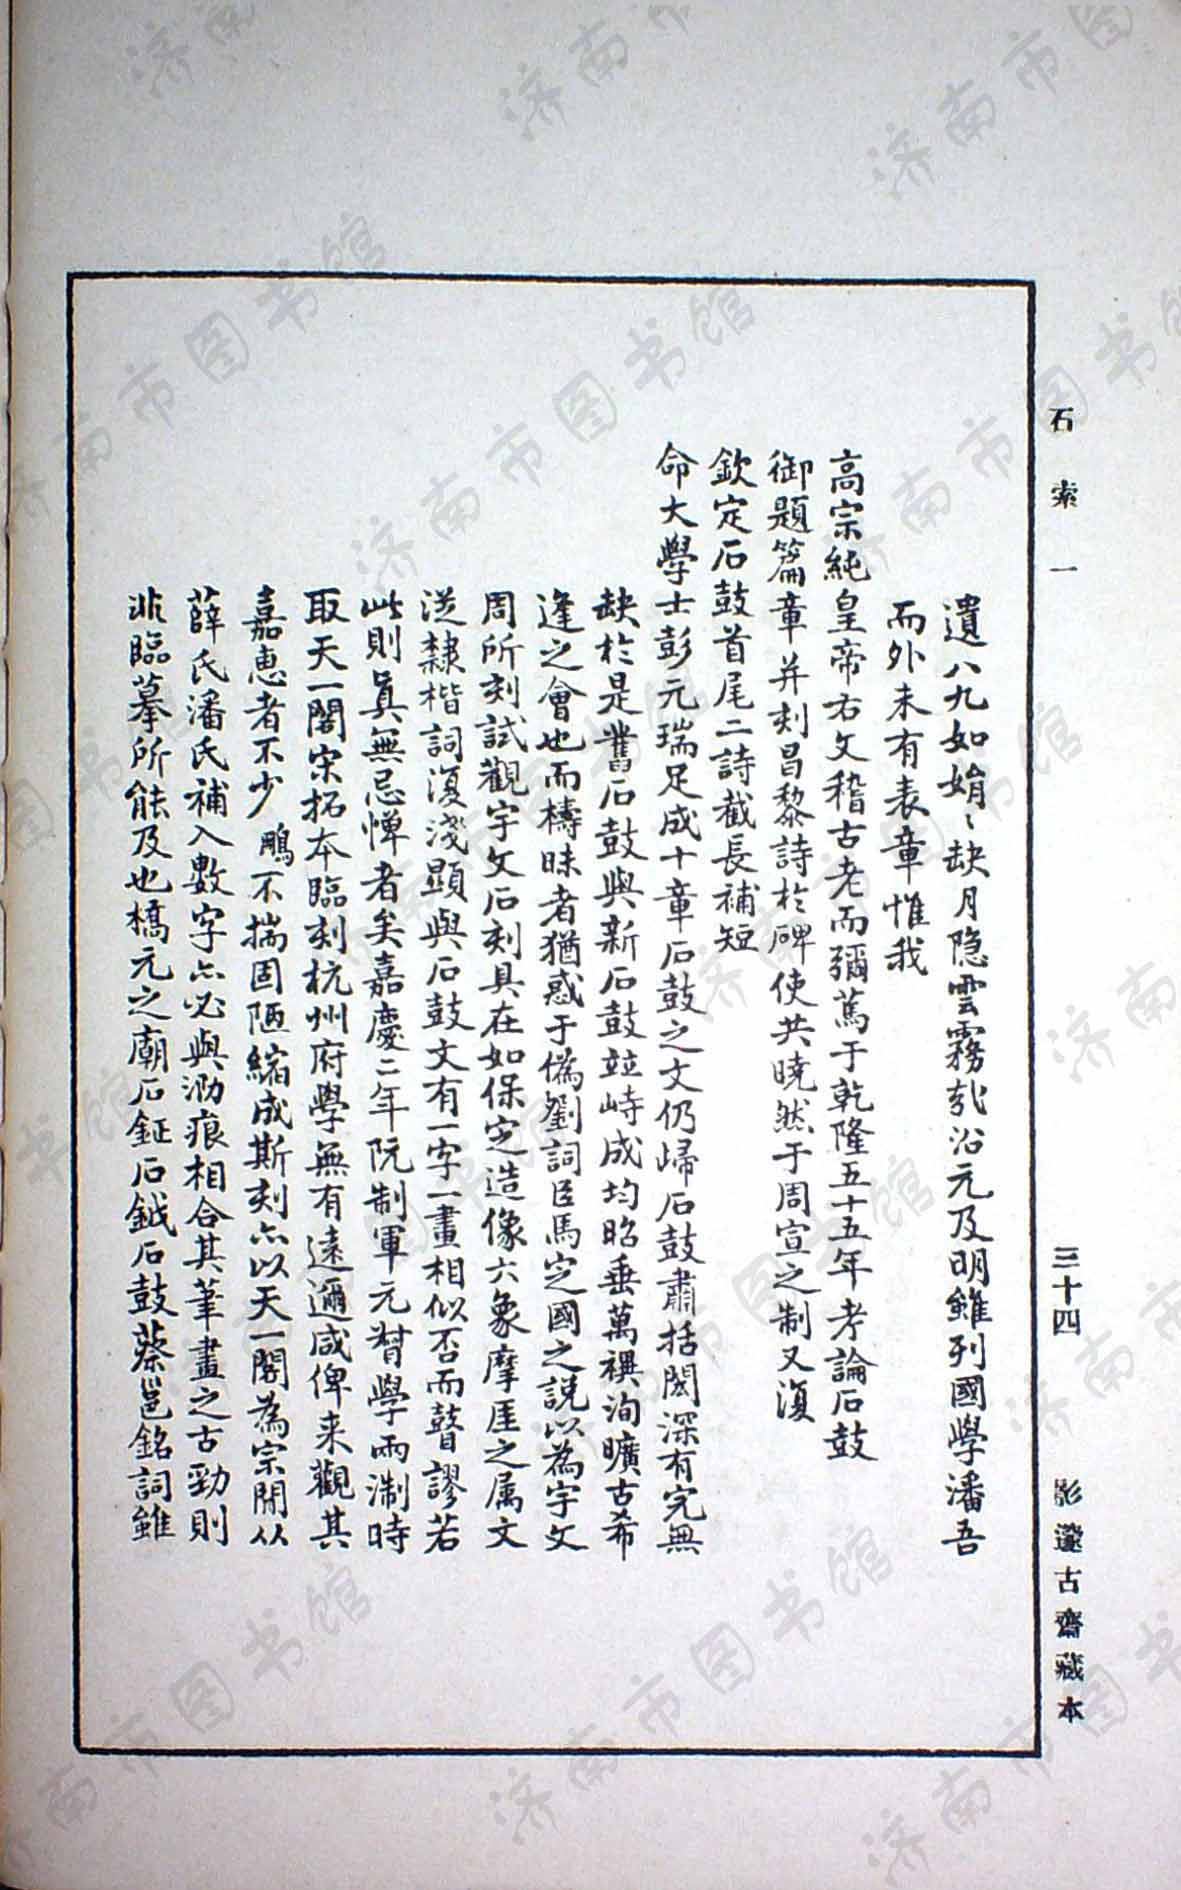 石索一 三十四 影邃古齋藏本
遺八九如娟〻缺月隐雲霧哉沿元及明雖列國學潘吾
而外未有表章惟我
高宗純皇帝右文稽古老而彌篤于乾隆五十五年考論石鼓
御題篇章并刻昌黎詩於碑使共曉然于周宣之制又復
欽定石鼓首尾二詩截長補短
命大學士彭元瑞足成十章石鼓之文仍歸石鼓肅括閎深有完無
缺於是舊石鼓與新石鼓竝峙成均昭垂萬禩洵曠古希
逢之會也而檮昧者猶惑于偽劉詞臣馬定國之說以為宇文
周所刻試觀宇文石刻具在如保定造像六象摩厓之属文
送隸楷詞復淺顯與石鼓文有一字一畫相似否而瞽謬若
此則真無忌憚者矣嘉慶二年阮制軍元督學兩淛時
取天一閣宋拓本臨刻杭州府學無有遠邇咸俾来觀其
嘉惠者不少鵬不揣固陋縮成斯刻亦以天一閣為宗閒从
薛氏潘氏補入數字亦必與泐痕相合其筆畫之古勁則
非臨摹所能及也橋元之廟石鉦石鉞石鼓蔡邕銘詞雖
济南市图书馆